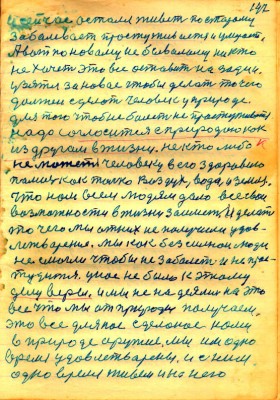 142
и сейчас остался живет по старому
Заболевает простуживается и умирает.
А вот по новому не бывалому никто
не хочет это все оставит на задки.
взятся за новое чтобы делат то что
должен сделат человек у природе
для того чтобы болет не простуживатся
надо согласится с природою как
из другам в жизни. некто либо
не может человеку в его здоровию
помич как только Воздух, вода, и земля.
что нам всем людям дало все свои
возможности в жизни занистись и делат
то чего мы от них не получили удов-
летварения. мы как безсилнои люди
не смогли чтобы не заболет и не прос-
тудится. у нас не было к этому
делу веры. и мы не надеялис на это
все что мы от природы получаем.
это все для нас сделаное нами
в природе другие, мы им одно
время удовлетварены. и с ним
одно время живем и на него